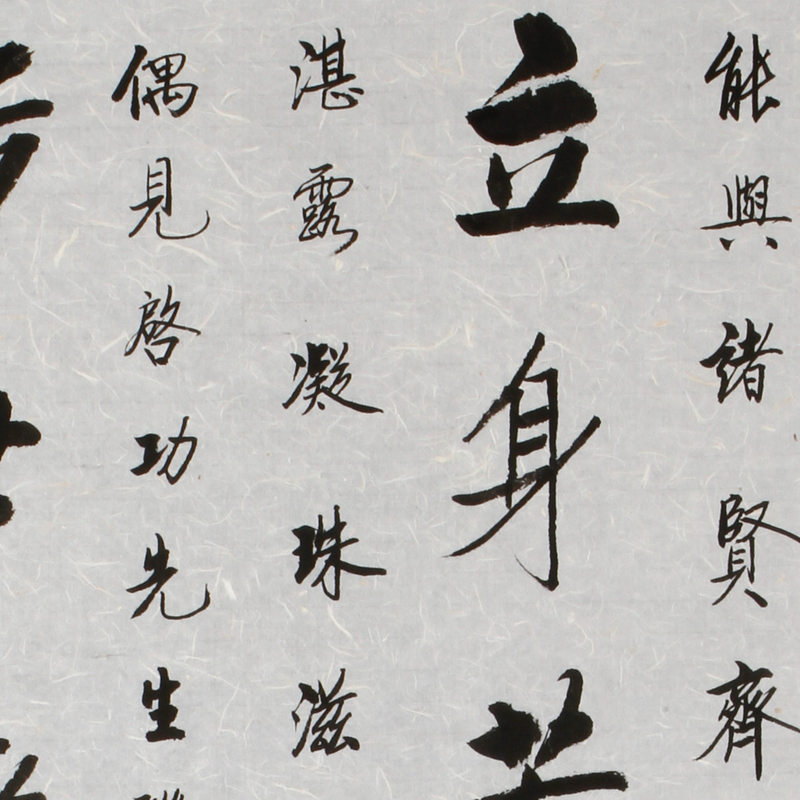 能與諸賢齊
立身
湛露凝珠滋
偶見啓功先生